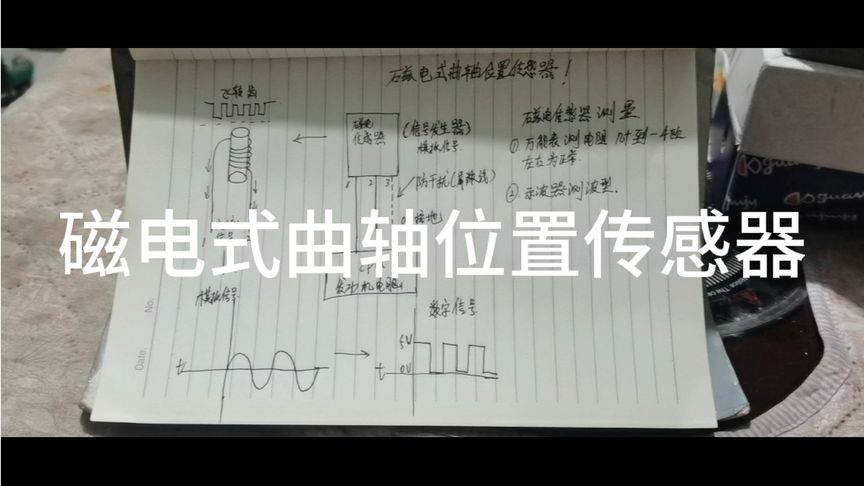 磁电式曲轴位置传感器!
飞轮齿
磁电
传感器
(信号发生器)
模拟信号.
1 2 3
防干扰(屏蔽线)
接地
磁电传感器测量
①.万能表测电阻
左右为正常.
②.示波器测波型.
磁电式曲轴位置传感器
信号
发动机电脑
模拟信号
数字信号
t
5V
t 0V
No.
Date.